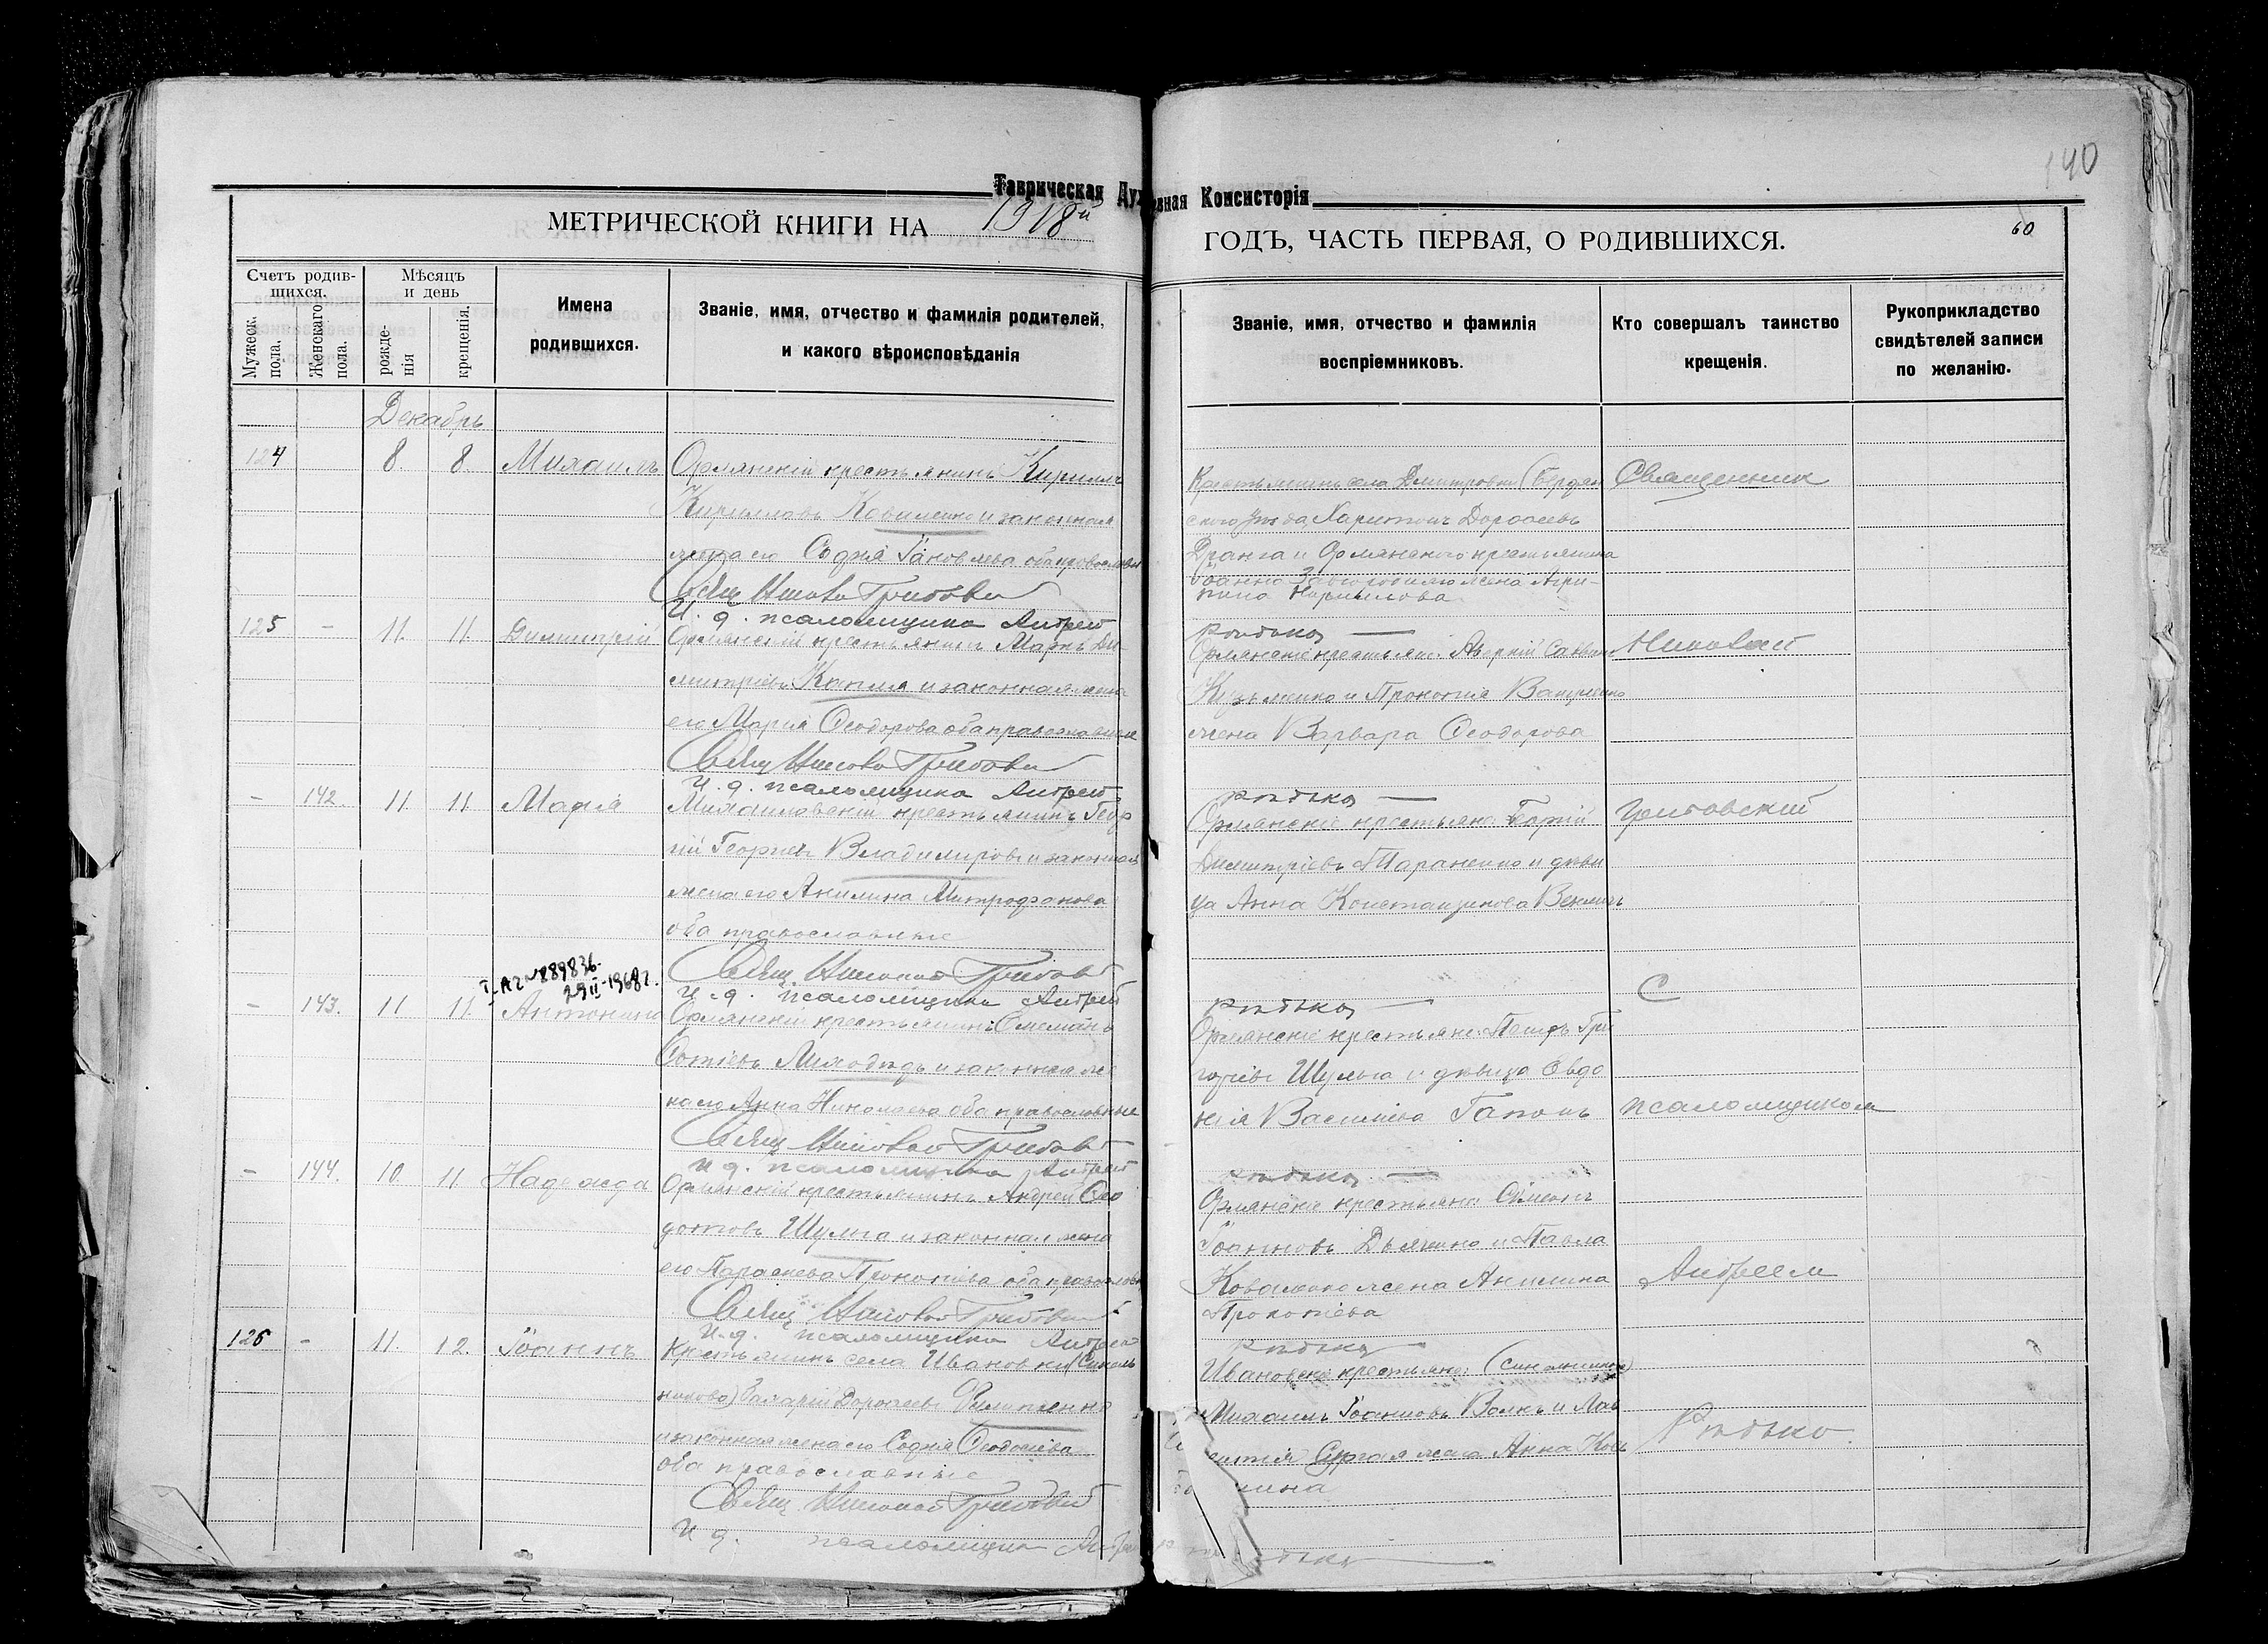 140
Таврическая Духовная Консисторія
МЕТРИЧЕСКОЙ КНИГИ НА 1918й ГОДЪ, ЧАСТЬ ПЕРВАЯ, О РОДИВШИХСЯ.
60
Счетъ родив-
шихся.
Мужеск. пола.
Женскаго пола.
Мѣсяцъ
и день
рожде-
нія
крещенія.
Имена
родившихся.
Званіе, имя, отчество и фамилія родителей,
и какого вѣроисповѣданія
Званіе, имя, отчество и фамилія
воспріемниковъ.
Кто совершалъ таинство
крещенія.
Рукоприкладство
свидѣтелей записи
по желанію.
Декабрь
124 8. 8. Михаилъ
Орлянскій крестьянинъ Кириллъ
Кирилловъ Коваленко и законная
жена его Софія Іаковлева оба православн
Свящ Николай
И. д. псаломщика Андрей Рѣдько
Крестьянинъ села Дмитровки (Бердян
скаго уѣзда, Харитонъ Дороѳеевъ
Дранга и Орлянскаго крестьянина
Іоанна жена Агри-
пина Кириллова
125 - 11. 11. Димитрій
Орлянскій крестьянинъ Маркъ Ди-
митріевъ Капля и законная жена
его Марія Ѳеодорова оба православные
Свящ Николай
И. д. псаломщика Андрей Рѣдько
Орлянскіе крестьяне: Аверкій Саввинъ
Кузьменко и Прокопія Ващенко
жена Варвара Ѳеодорова
- 142. 11. 11. Марія
Михаиловскій крестьянинъ Геор
гій Георгіевъ Владиміровъ и законная
жена его Акилина Митрофанова
оба православные
Свящ Николай
И. д. псаломщика Андрей Рѣдько
Орлянскіе крестьяне: Георгій
Димитріевъ Тараненко и дѣви
ца Анна Константинова Веклич
I-АП №889836
29 II-1968г.
- 143. 11 11. Антонина
Орлянскій крестьянинъ
Фотіевъ Лиходѣдъ и законная же
на его Анна Николаева оба православные
Свящ Николай
И. д. псаломщика Андрей Рѣдько
Орлянскіе крестьяне: Петръ Гри
горіевъ Шульга и дѣвица Евдо
кія Василіева Гапонъ
- 144. 10. 11. Надежда
Орлянскій крестьянинъ Андрей Ѳео
дотовъ Шульга и законная жена
его Параскева Прокопіева оба православн
Свящ Николай
И. д. псаломщика Андрей Рѣдько
Орлянскіе крестьяне: Симеонъ
Іоанновъ Дьяченко и Павла
Коваленко жена Акилина
Прокопіева
126 - 11. 12. Іоаннъ
Крестьянинъ села Ивановки (Синель
никово) Дороѳеевъ Филипенко
и законная жена его Софія Ѳеодосіева
оба православные
Свящ Николай
И д. псаломщика
Ивановскіе крестьяне: (Синельниково)
Михаилъ Іоанновъ Волкъ и Лав
рентія жена Анна
Священник
Николай
С
псаломщиком
Андреем
Рѣдько.